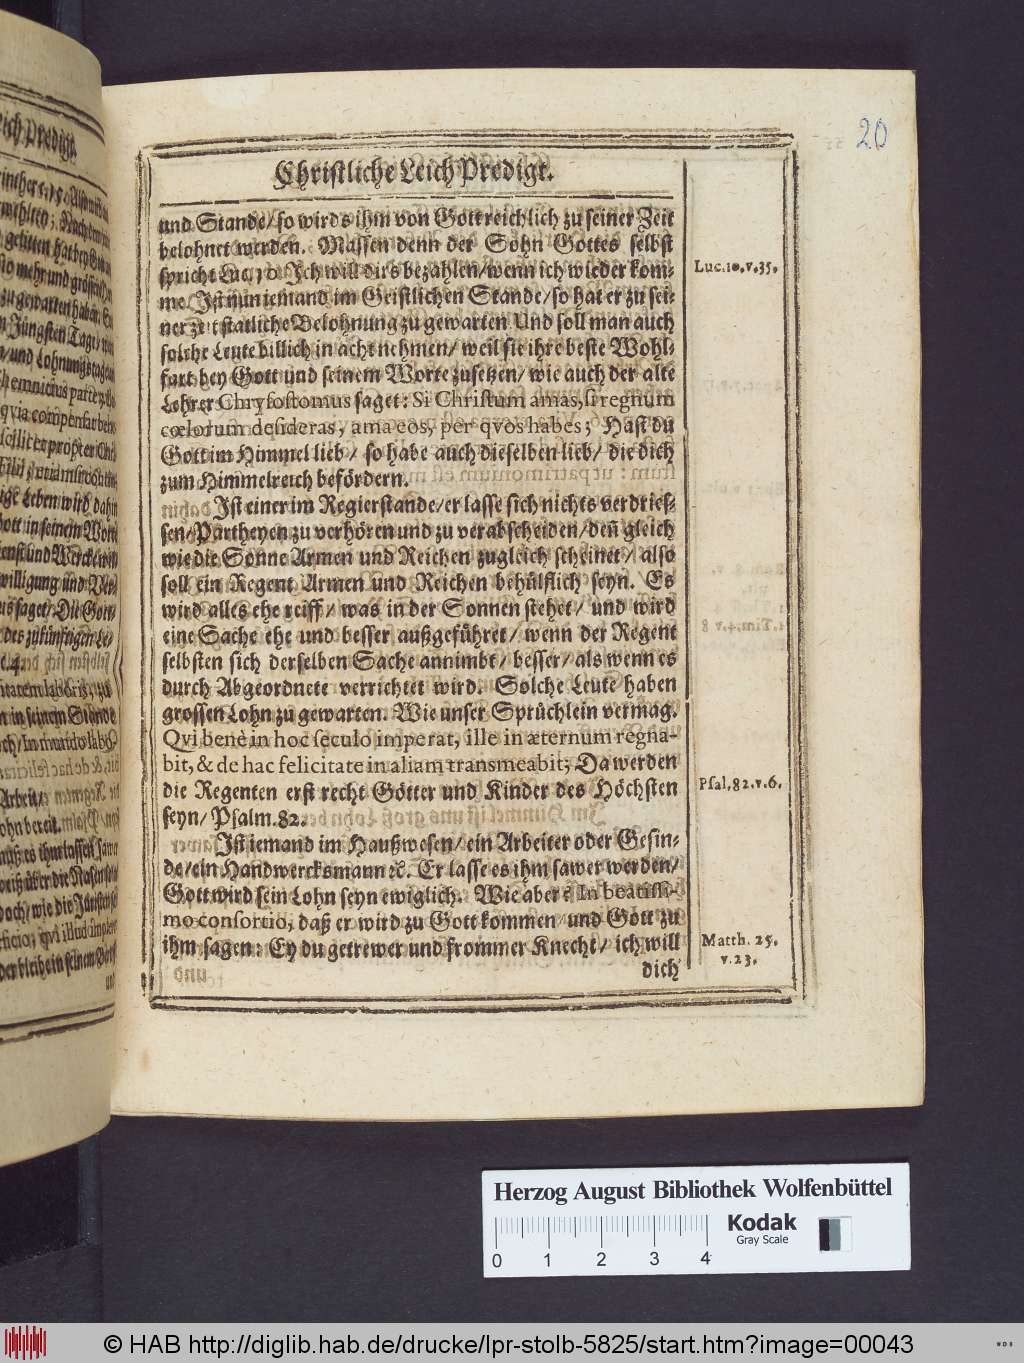 20
Christliche Leich Predigt.
und Stande/ so wird s ihm von Gott reichlich zu seiner Zeit
belohnet werden. Massen denn der Sohn Gottes selbst
spricht Luc. 10. Jch will dirs bezahlen/ wenn ich wieder kom-
me. Jst nun iemand im Geistlichen Stande/ so hat er zu sei-
ner zeit statliche Belohnung zu gewarten Und soll man auch
solche Leute billich in acht nehmen/ weil sie ihre beste Wohl-
fart bey Gott und seinem Worte zusetzen/ wie auch der alte
Lehrer Chrysostomus saget: Si Christum amas, si regnum
cœlorum desideras, ama eos, per qvos habes; Hast du
Gott im Himmel lieb/ so habe auch dieselben lieb/ die dich
zum Himmelreich befördern.
Jst einer im Regierstande/ er lasse sich nichts verdries-
sen/ Partheyen zu verhören und zu verabscheiden/ deñ gleich
wie die Sonne Armen und Reichen zugleich scheinet/ also
soll ein Regent Armen und Reichen behülflich seyn. Es
wird alles ehe reiff/ was in der Sonnen stehet/ und wird
eine Sache ehe und besser außgeführet/ wenn der Regent
selbsten sich derselben Sache annimbt/ besser/ als wenn es
durch Abgeordnete verrichtet wird. Solche Leute haben
grossen Lohn zu gewarten. Wie unser Sprüchlein vermag.
Qvi benè in hoc seculo imperat, ille in æternum regna-
bit, & de hac felicitate in aliam transmeabit; Da werden
die Regenten erst recht Götter und Kinder des Höchsten
seyn/ Psalm. 82.
Jst iemand im Haußwesen/ ein Arbeiter oder Gesin-
de/ ein Handwercksmann ꝛc. Er lasse es ihm sawer werden/
Gott wird sein Lohn seyn ewiglich. Wie aber? In beatissi-
mo consortio, daß er wird zu Gott kommen/ und Gott zu
ihm sagen: Ey du getrewer und frommer Knecht/ ich will
dich
Luc. 10. v. 35.
Psal. 82. v. 6.
Matth. 25.
v. 23.
Herzog August Bibliothek Wolfenbüttel
Kodak
Gray Scale
0 1 2 3 4
© HAB http://diglib.hab.de/drucke/lpr-stolb-5825/start.htm?image=00043